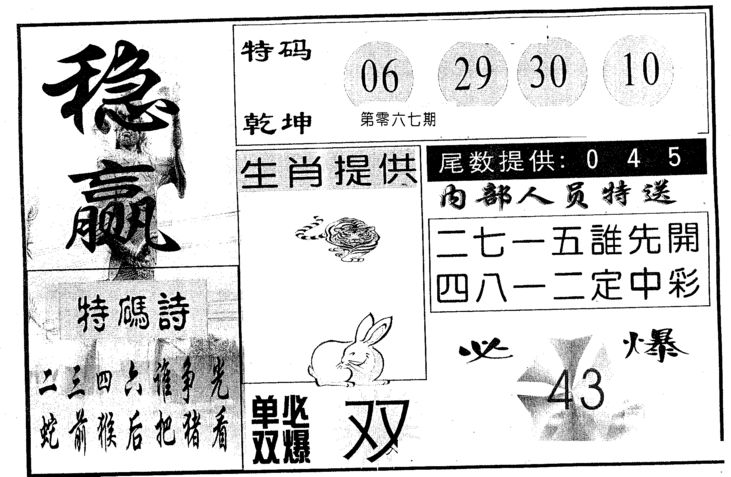 稳
赢
特码
乾坤
06 29 30 10
第零六七期
生肖提供
尾数提供: 0 4 5
内部人员特送
二七一五誰先開
四八一二定中彩
特碼詩
二三四六谁争光
蛇前猴后把猪看
必爆
43
单双
必爆
双